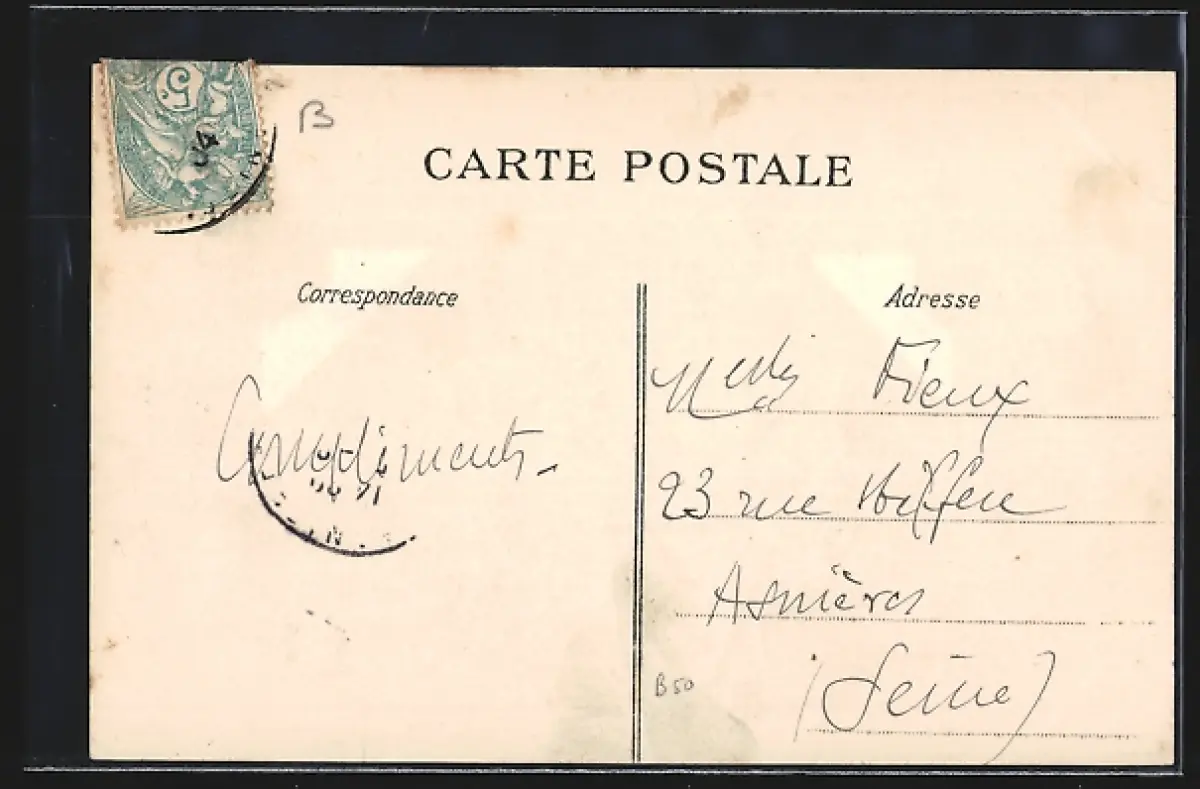 5c
B
CARTE POSTALE
Correspondance
Compliments.
Adresse
Fieux
23 rue
Asnières
(Seine)
B50